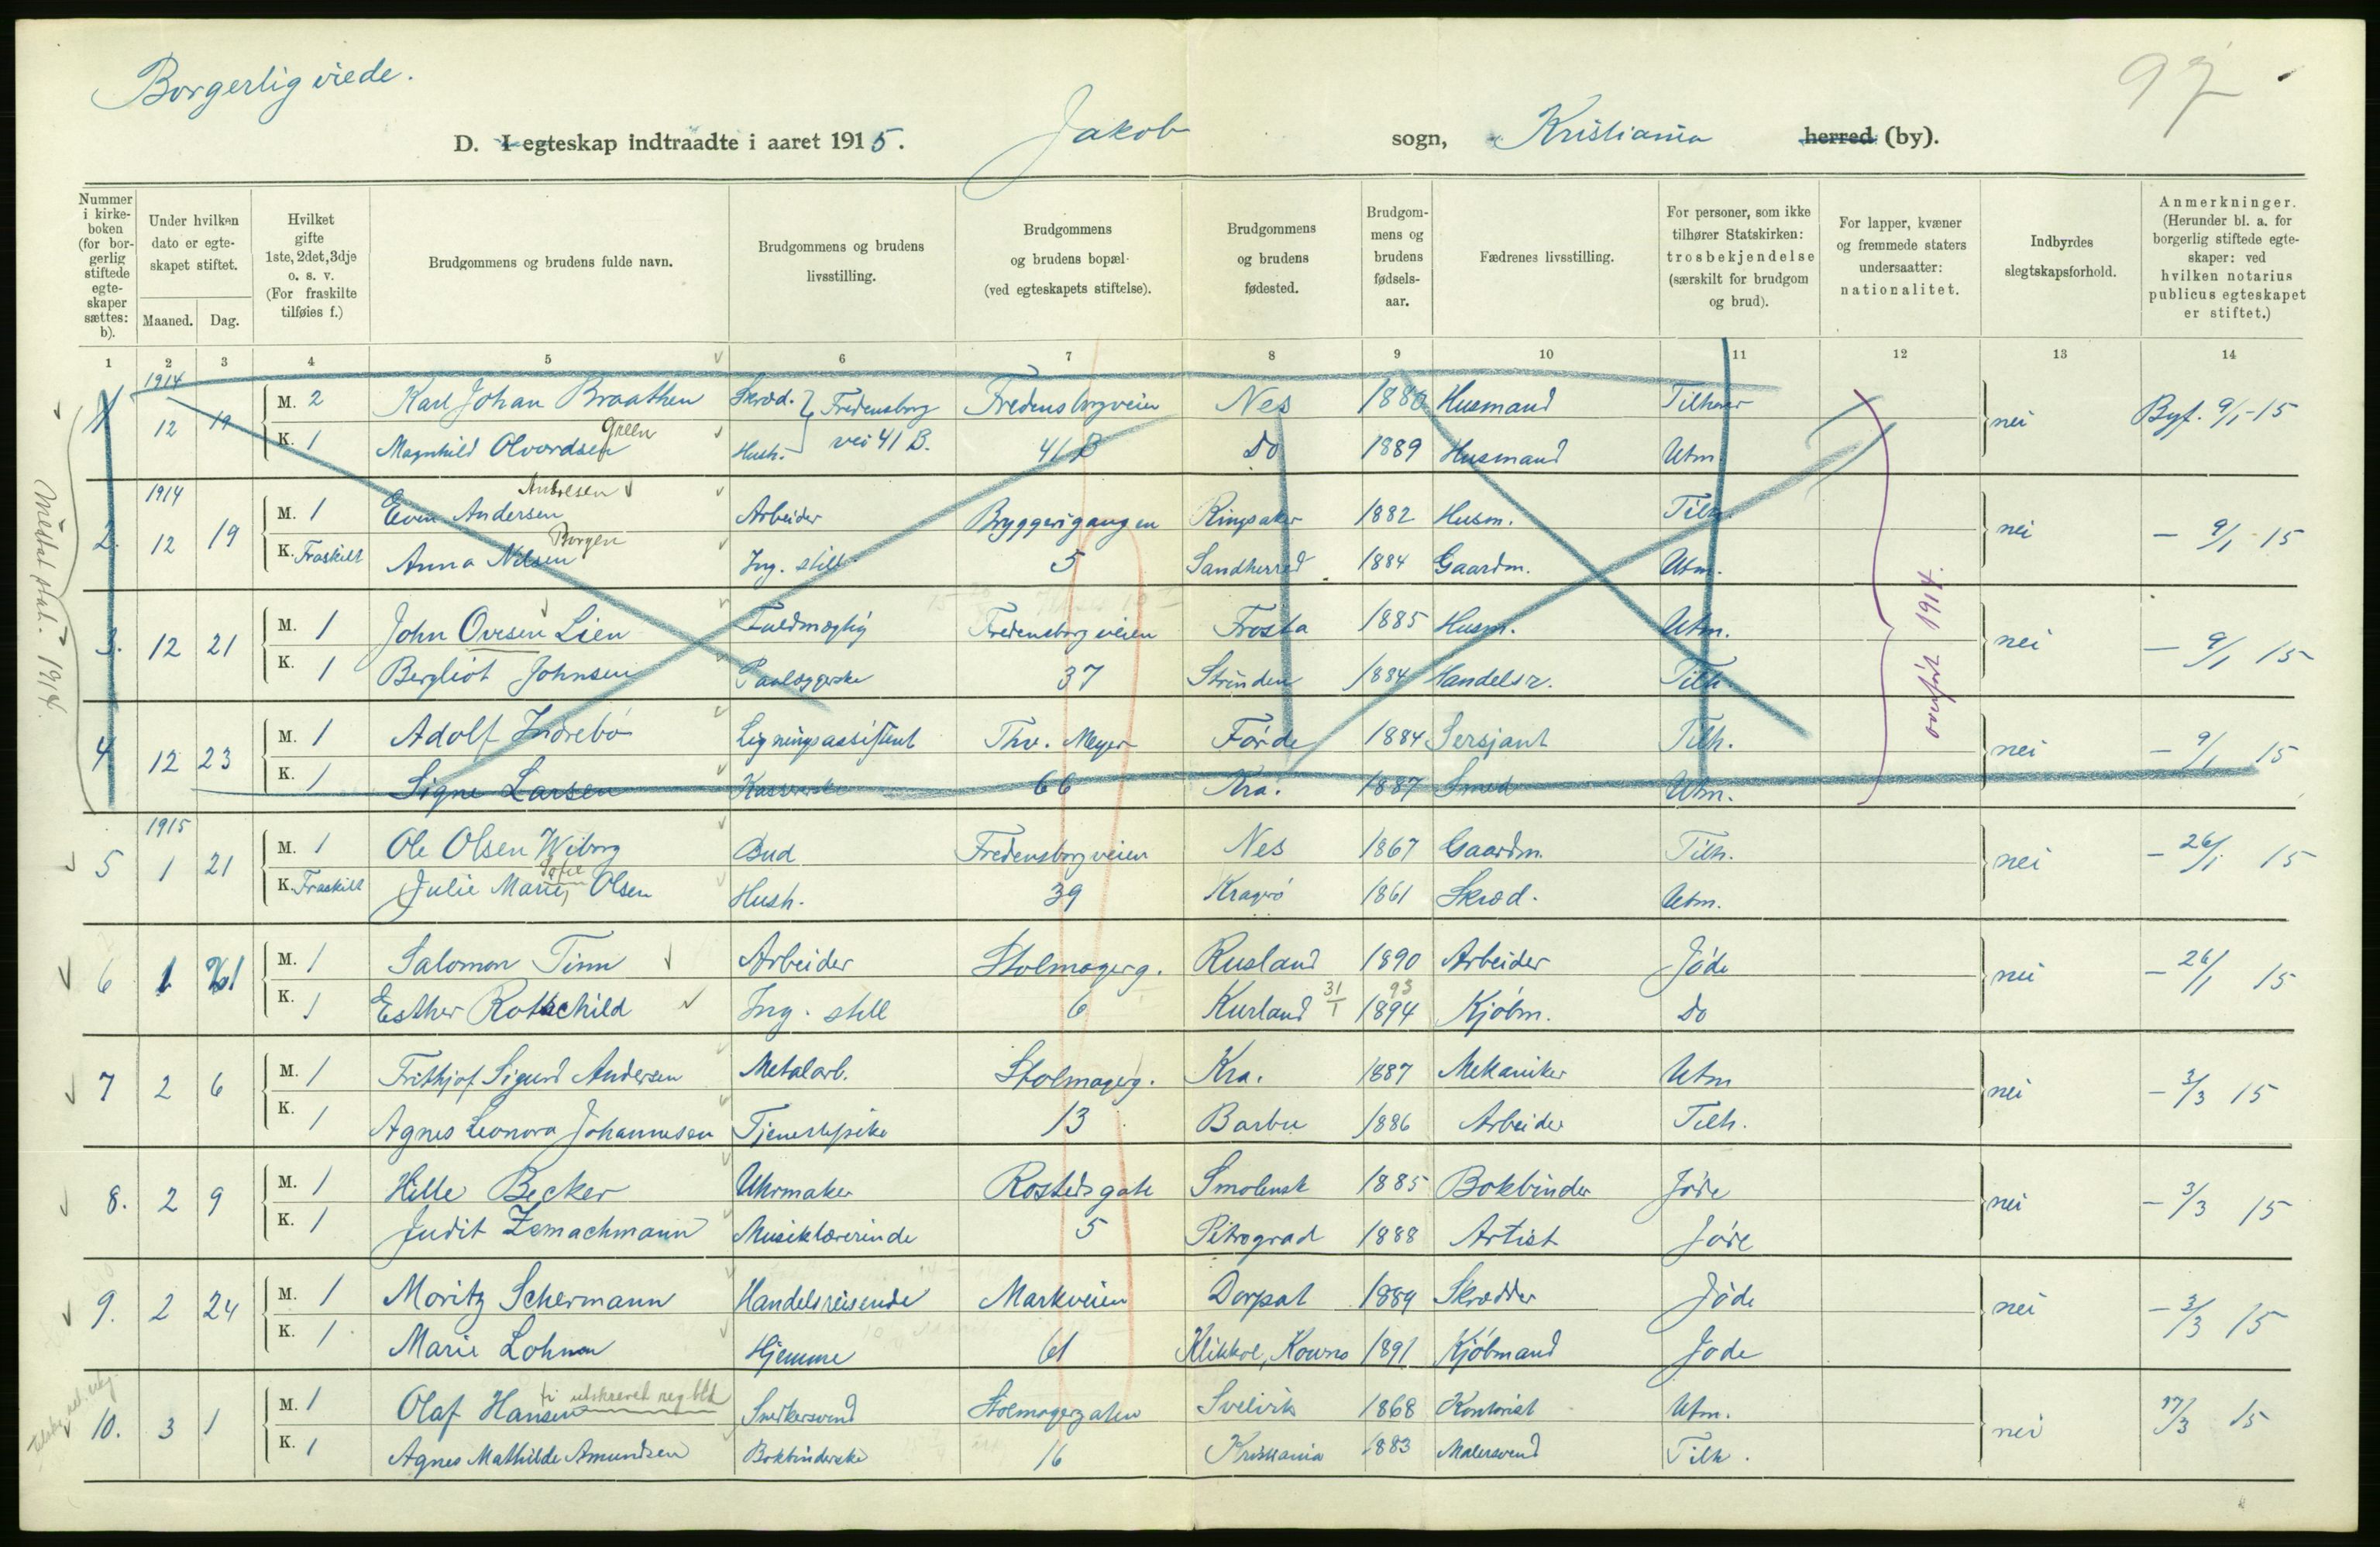 Borgerlig viede.
97
D. I egteskap indtraadte i aaret 1915. Jakob sogn, Kristiania herred (by).
Nummer i kirkeboken (for borgerlig stiftede egteskaper sættes: b).
Under hvilken dato er egteskapet stiftet.
Maaned. Dag.
Hvilket gifte 1ste, 2det, 3dje o. s. v. (For fraskilte tilføies f.)
Brudgommens og brudens fulde navn.
Brudgommens og brudens livsstilling.
Brudgommens og brudens bopæl (ved egteskapets stiftelse).
Brudgommens og brudens fødested.
Brudgommens og brudens fødselsaar.
Fædrenes livsstilling.
For personer, som ikke tilhører Statskirken: trosbekjendelse (særskilt for brudgom og brud).
For lapper, kvæner og fremmede staters undersaatter: nationalitet.
Indbyrdes slegtskapsforhold.
Anmerkninger. (Herunder bl. a. for borgerlig stiftede egteskaper: ved hvilken notarius publicus egteskapet er stiftet.)
1 2 3 4 5 6 7 8 9 10 11 12 13 14
1914
1 12 M. 2 Karl Johan Braathen Skræd. Fredensborg Fredensborgveien Nes 1880 Husmand Tilhører nei Byf. 9/1-15
Green
K. 1 Magnhild Olvardsen Hush. vei 41 B. 41 B Do 1889 Husmand Utm
1914
Andresen
2. 12 19 M. 1 Even Andersen Arbeider Bryggerigangen Ringsaker 1882 Husm. Tilh. nei — 9/1 - 15
Borgen
K. Fraskilt Anna Nilsen Ing. still. 5 Sandherred 1884 Gaardm. Utm.
3. 12 21 M. 1 John Ovesen Lien Fuldmægtig Fredensborgveien Frosta 1885 Husm. Utm. nei — 9/1 15
K. 1 Bergliot Johnsen Paalæggerske 37 Strinden 1884 Handelsr. Tilh.
4 12 23 M. 1 Adolf Indrebö Ligningsassistent Thv. Meyer Förde 1884 Sersjant Tilh. nei — 9/1 15
K. 1 Signe Larsen Kasserske 66 Kra. 1887 Smed Utm.
overfört 1914.
1914.
1915
5 1 21 M. 1 Ole Olsen Wiborg Bud Fredensborgveien Nes 1867 Gaardm. Tilh. nei — 26/1 15
Sofie
K. Fraskilt Julie Marie, Olsen Hush. 39 Kragerö 1861 Skræd. Utm.
6 1 M. 1 Salomon Finn Arbeider Stolmagerg. Rusland 1890 Arbeider Jöde nei — 26/1 15
31/1 93
K. 1 Esther Rotschild Ing. still 6 Kurland 1894 Kjöbm. Do
7 2 6 M. 1 Frithjof Sigurd Andersen Metalarb. Stolmagerg. Kra. 1887 Mekaniker Utm nei — 3/3 15
K. 1 Agnes Leonora Johannesen Tjenestepike 13 Barbu 1886 Arbeider Tilh.
8. 2 9 M. 1 Hille Becker Uhrmaker Rostedsgate Smolensk 1885 Bokbinder Jöde nei — 3/3 15
K. 1 Judit Zemachmann Musiklærerinde 5 Petrograd 1888 Artist Jöde
9. 2 24 M. 1 Moritz Schermann Handelsreisende Markveien Dorpat 1889 Skrædder Jöde nei — 3/3 15
K. 1 Marie Lohman Hjemme 61 Klikkol, Kowno 1891 Kjöbmand Jöde
utskrevet
10. 3 1 M. 1 Olaf Hansen Snedkersvend Stolmagergaten Svelvik 1868 Kontorist Utm. nei 17/3 15
K. 1 Agnes Mathilde Amundsen Bokbinderske 16 Kristiania 1883 Malersvend Tilh.